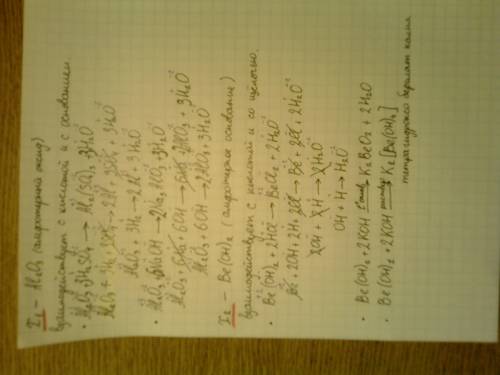 I₁ — Al₂O₃ (амфотерный оксид)
взаимодействует с кислотой и с основанием.
• Al₂O₃ + 3H₂SO₄ → Al₂(SO₄)₃ + 3H₂O
Al₂O₃ + → 2Al + 3SO₄ + 3H₂O
Al₂O₃ + → 2Al + 3H₂O
• Al₂O₃ + 6NaOH → 2Na₃AlO₃ + 3H₂O
Al₂O₃ + 6Na + 6OH → 6Na + 2AlO₃ + 3H₂O
Al₂O₃ + 6OH → 2AlO₃ + 3H₂O
I₂ — Be(OH)₂ (амфотерное основание)
взаимодействует с кислотой и со щёлочью.
• Be(OH)₂ + 2HCl → BeCl₂ + 2H₂O
Be + 2OH + 2H + 2Cl → Be + 2Cl + 2H₂O
2OH + 2H → 2H₂O
OH + H → H₂O
• Be(OH)₂ + 2KOH → K₂BeO₂ + 2H₂O
• Be(OH)₂ + 2KOH → K₂[Be(OH)₄]
тетрагидроксо бериллат калия